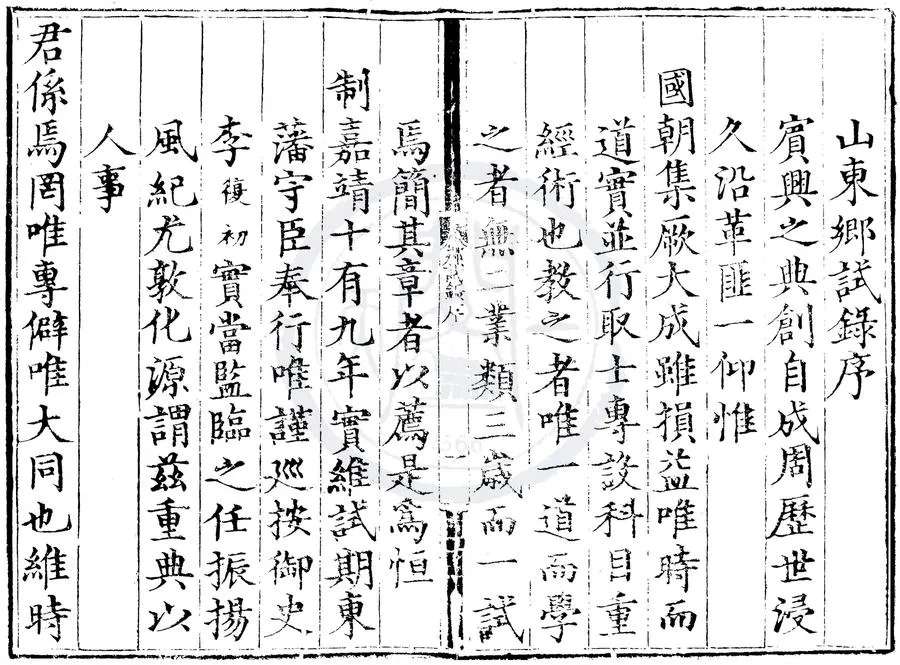 山東鄉試錄序
賓興之典創自成周歷世浸
久沿革匪一仰惟
國朝集厥大成雖損益唯時而
道實並行取士專設科目重
經術也教之者唯一道而學
之者無二業類三歲而一試
焉簡其章者以薦是為恒
制嘉靖十有九年實維試期東
藩守臣奉行唯謹廵按御史
李復初實當監臨之任振揚
風紀尤敦化源謂茲重典以
人事
君係焉罔唯專僻唯大同也維時